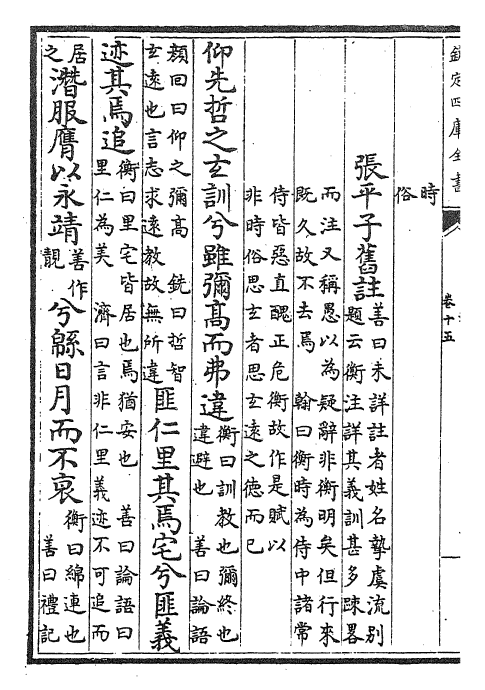 欽定四庫全書
卷十五
時
俗
張平子舊註
善曰未詳註者姓名摯虞流別
題云衡注詳其義訓甚多踈畧
而注又稱愚以為疑辭非衡明矣但行來
既久故不去焉　翰曰衡時為侍中諸常
侍皆惡直醜正危衡故作是賦以
非時俗思玄者思玄逺之德而已
仰先哲之玄訓兮雖彌髙而弗違
衡曰訓教也彌終也
違避也　善曰論語
顔回曰仰之彌髙　銑曰哲智
玄逺也言志求逺教故無所違
匪仁里其焉宅兮匪義
迹其焉追
衡曰里宅皆居也焉猶安也　善曰論語曰
里仁為美　濟曰言非仁里義迹不可追而
居
之
潛服膺以永靖
善作
靚
兮緜日月而不衰
衡曰綿連也
善曰禮記